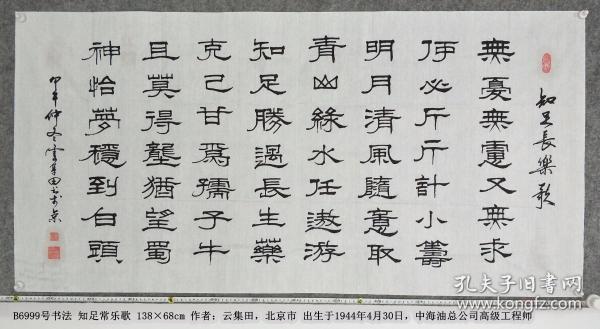 知足長樂歌
無憂無慮又無求
何必斤斤計小籌
明月清風隨意取
青山綠水任遨游
知足勝過長生藥
克己甘爲孺子牛
且莫得壟猶望蜀
神怡夢穩到白頭
甲午仲冬雲集田書於京
孔夫子旧书网
B6999号书法 知足常乐歌 138×68cm 作者：云集田，北京市 出生于1944年4月30日，中海油总公司高级工程师